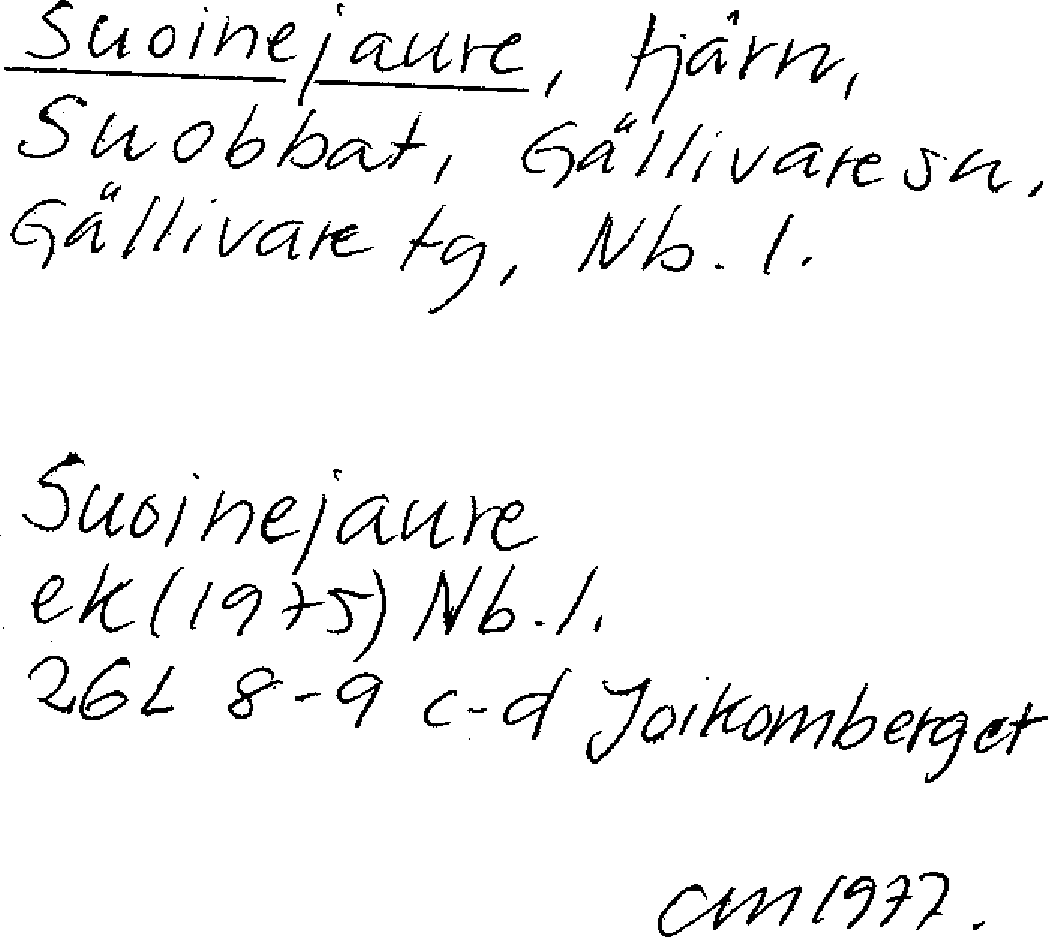 Suoinejaure, tjärn,
Suobbat, Gällivare sn,
Gällivare tg, Nb. l.
Suoinejaure
ek (1975) Nb. l.
26L 8-9 c-d Joikomberget
CM 1977.